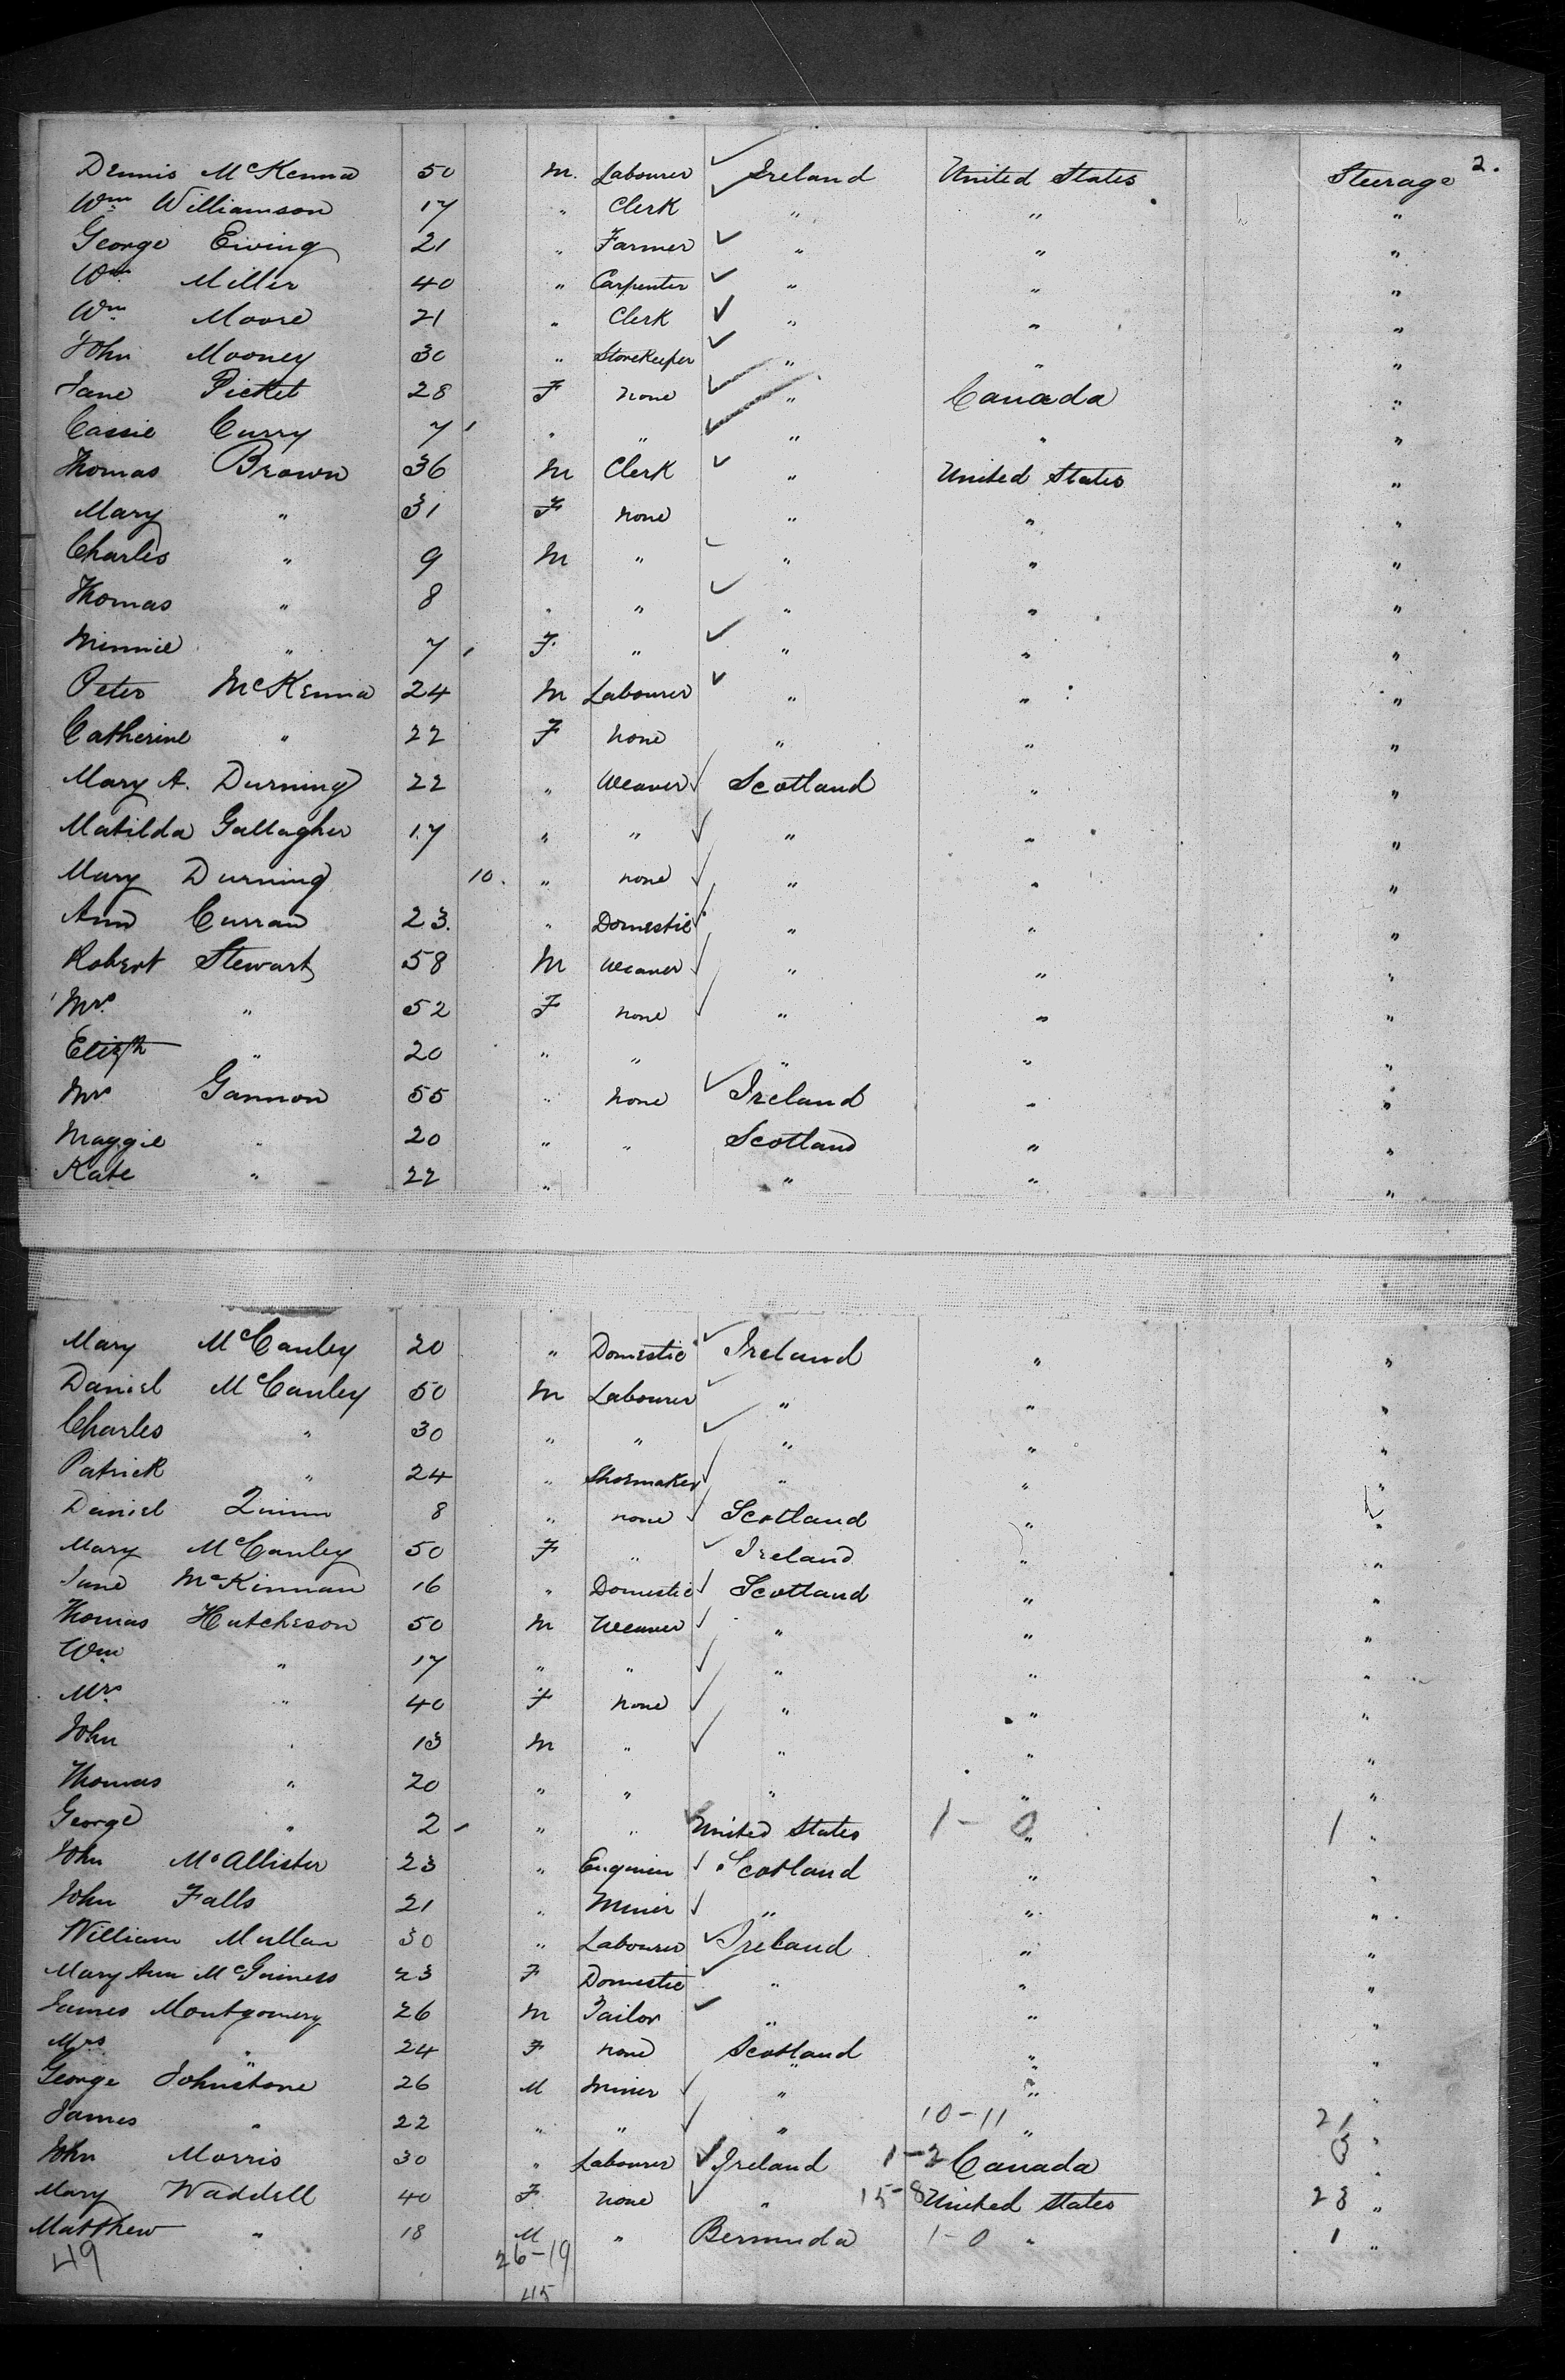 2.
Dennis McKenna 50 M. Labourer Ireland United States Steerage
Wm Williamson 17 " Clerk " " "
George Ewing 21 " Farmer " " "
Wm Miller 40 " Carpenter " " "
Wm Moore 21 " Clerk " " "
John Mooney 30 " Storekeeper " " "
Jane Picket 28 F none " Canada "
Cassie Curry 7 " " " " "
Thomas Brown 36 M Clerk " United States "
Mary " 31 F none " " "
Charles " 9 M " " " "
Thomas " 8 " " " " "
Minnie " 7 F " " " "
Peter McKenna 24 M Labourer " " "
Catherine " 22 F none " " "
Mary A. Durning 22 " Weaver Scotland " "
Matilda Gallagher 17 " " " " "
Mary Durning 10. " none " " "
Ann Curran 23. " Domestic " " "
Robert Stewart 58 M Weaver " " "
Mrs " 52 F none " " "
Elizth " 20 " " " " "
Mrs Gannon 55 " none Ireland " "
Maggie " 20 " " Scotland " "
Kate " 22 " " " "
Mary McCauley 20 " Domestic Ireland " "
Daniel McCauley 50 M Labourer " " "
Charles " 30 " " " " "
Patrick " 24 " Shoemaker " " "
Daniel Quinn 8 " none Scotland " "
Mary McCauley 50 F " Ireland " "
Jane McKinnan 16 " Domestic Scotland " "
Thomas Hutcheson 50 M Weaver " " "
Wm " 17 " " " " "
Mrs " 40 F none " " "
John " 13 M " " " "
Thomas " 20 " " " " "
George " 2 " " United States 1-0 " 1 "
John McAllister 23 " Engineer Scotland " "
John Falls 21 " Miner " " "
William Mullan 30 " Labourer Ireland " "
Mary Ann McGuiness 23 F Domestic " " "
James Montgomery 26 M Tailor " " "
Mrs " 24 F none Scotland " "
George Johnstone 26 M Miner " " "
James " 22 " " " 10-11 " 21 "
John Morris 30 " Labourer Ireland 1-2 Canada 3 "
Mary Waddell 40 F none " 15-8 United States 23 "
Matthew " 18 M " Bermuda 1-0 " 1 "
49 26-19
45